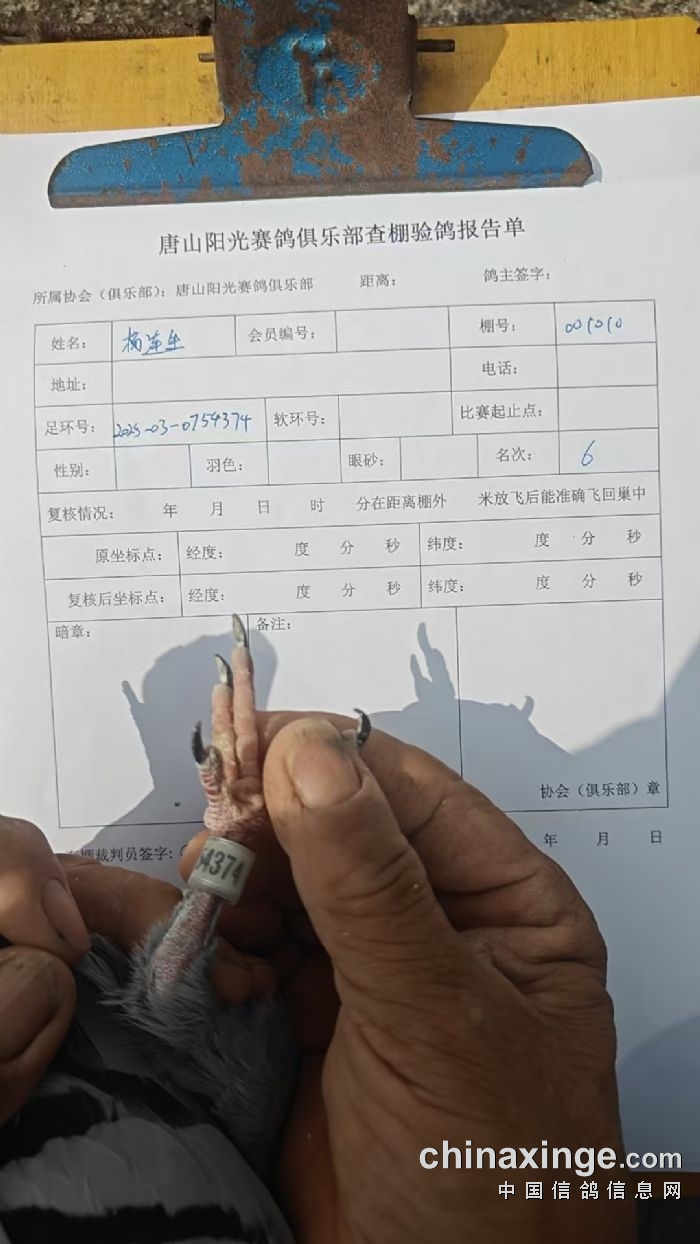 唐山阳光赛鸽俱乐部查棚验鸽报告单
所属协会（俱乐部）：唐山阳光赛鸽俱乐部 距离： 鸽主签字：
姓名： 杨连生 会员编号： 棚号： 001010
地址： 电话：
足环号： 2025-03-0754374 软环号： 比赛起止点：
性别： 羽色： 眼砂： 名次： 6
复核情况： 年 月 日 时 分在距离棚外 米放飞后能准确飞回巢中
原坐标点： 经度： 度 分 秒 纬度： 度 分 秒
复核后坐标点： 经度： 度 分 秒 纬度： 度 分 秒
暗章： 备注：
协会（俱乐部）章
棚裁判员签字： 年 月 日
54374
chinaxinge.com
中国信鸽信息网